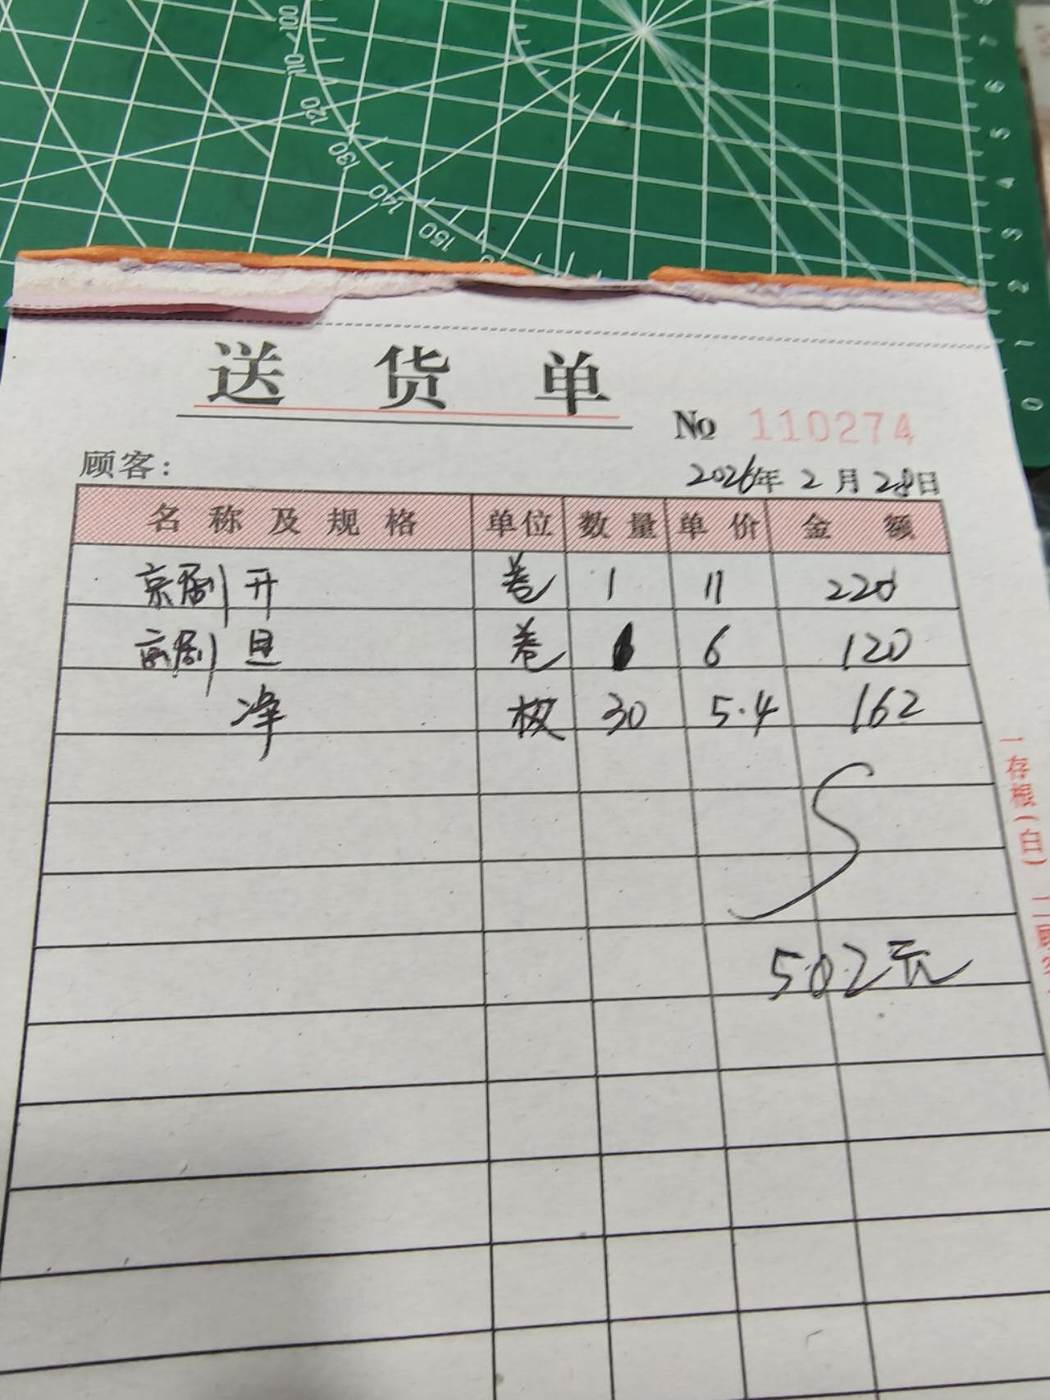 100 110 120 130 140 150
7 6 5 4 3 2 1 0
送货单
No 110274
顾客:
2026年 2月 28日
名称及规格 单位 数量 单价 金额
京剧 开 卷 1 11 220
京剧 旦 卷 6 120
净 枚 30 5.4 162
502元
一存根(白) 二顾客